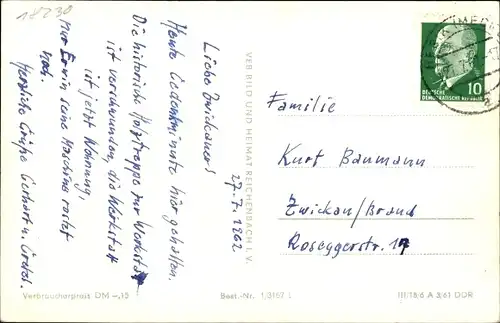 18230
27.7.1962
Liebe Zwickauer!
Heute Gedenkminute hier gehalten.
Die historische Holztreppe zur Werkstatt
ist verschwunden, die Werkstatt
ist jetzt Wohnung,
nur Erwin seine Maschine rostet
noch.
Herzliche Grüße Gerhart u. Gretel.
VEB BILD UND HEIMAT REICHENBACH I. V.
DEUTSCHE
DEMOKRATISCHE REPUBLIK
10
Familie
Kurt Baumann
Zwickau/Brand
Roseggerstr. 17
Verbraucherpreis DM -,15
Best.-Nr. 1/3167 L
III/18/6 A 3/61 DDR